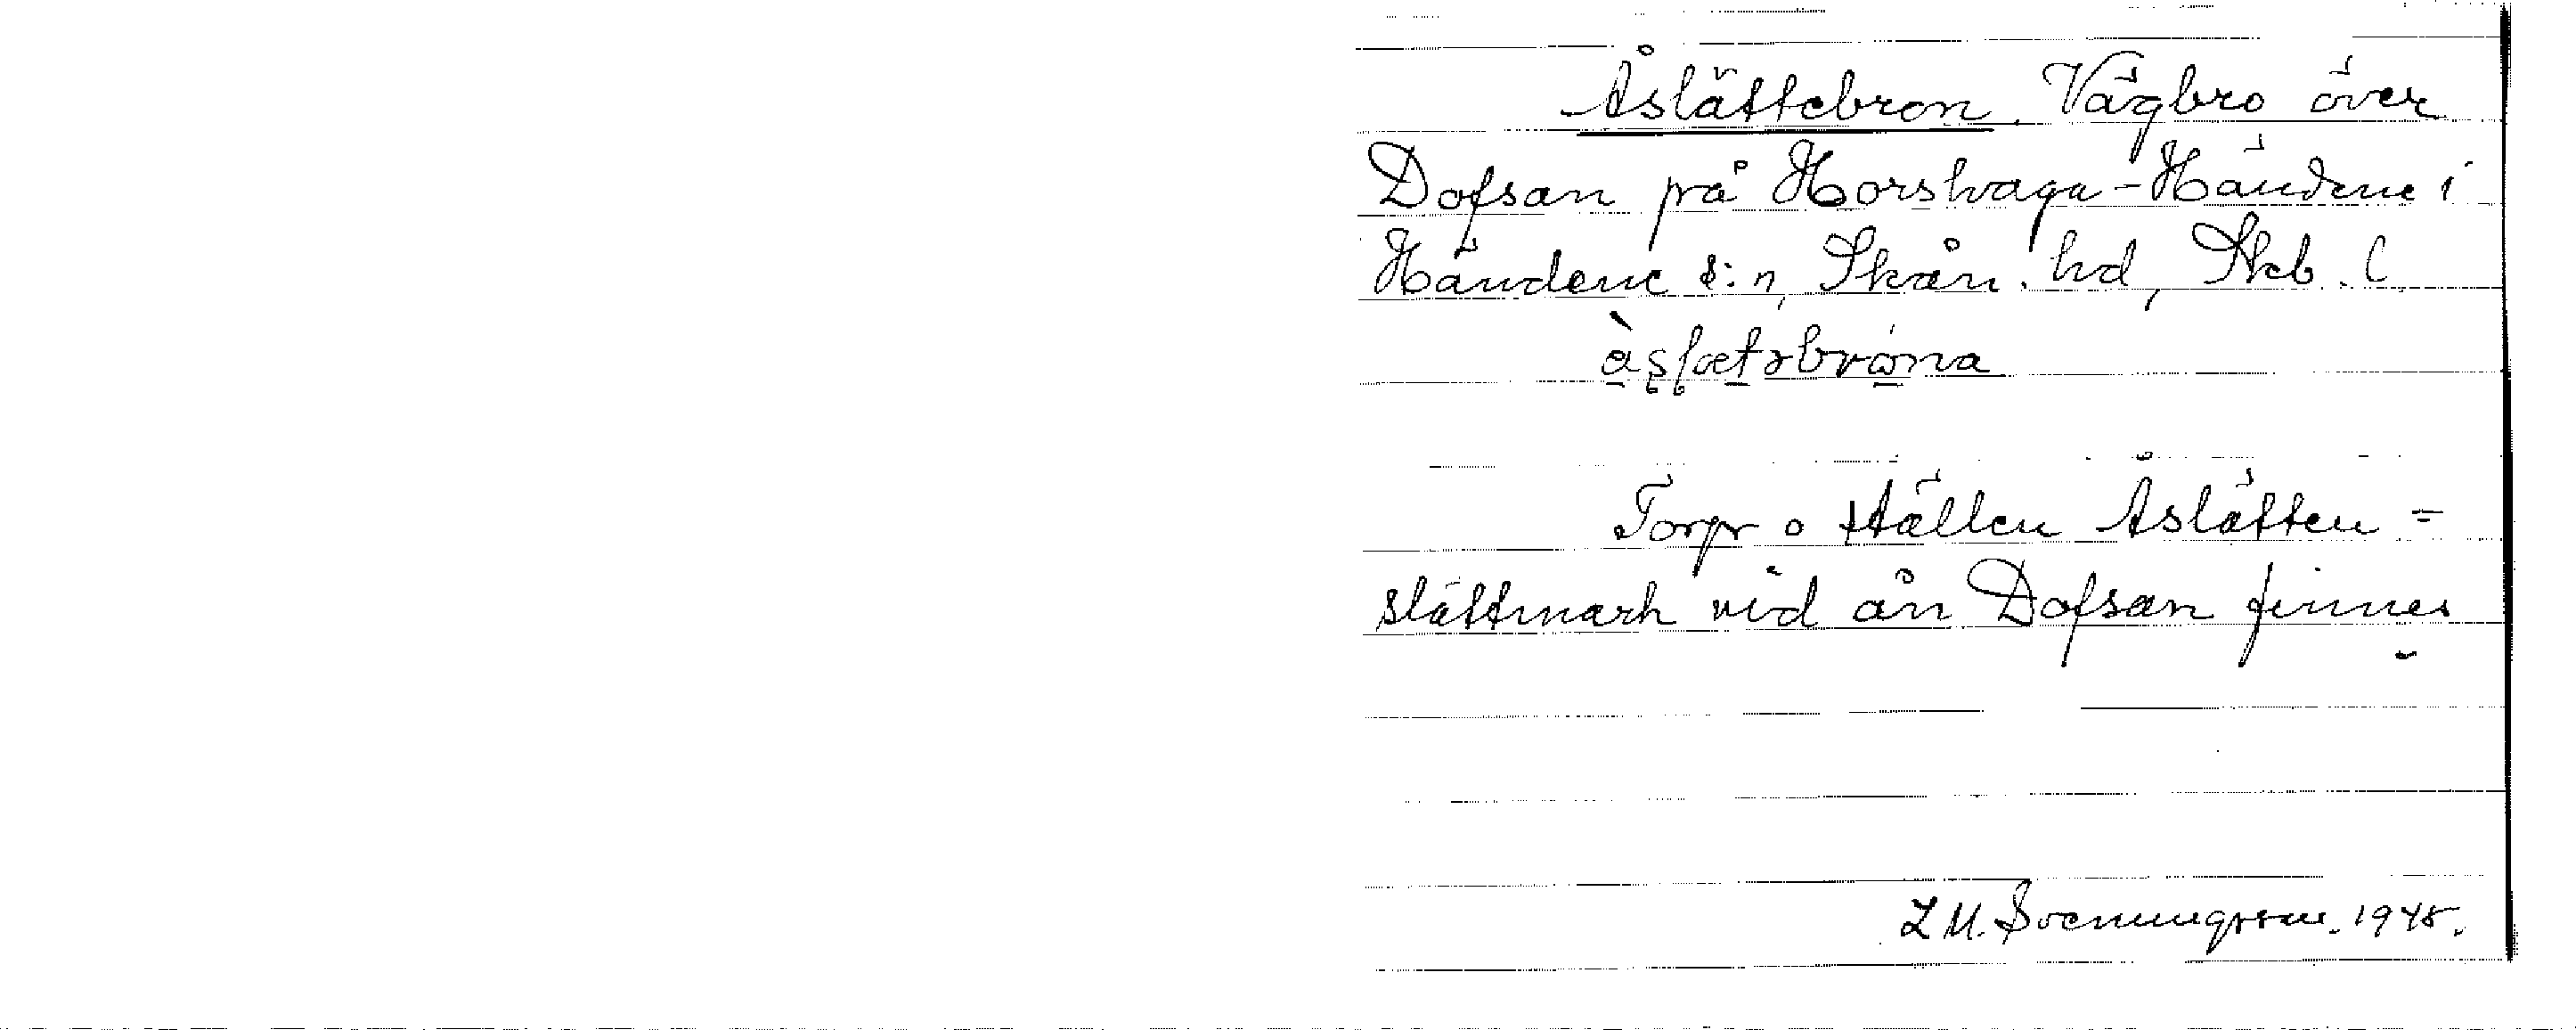 Åslättebron. Vägbro över
Dofsan på Horshaga-Händene i
Händene s:n, Skån. hd, Skb. l.
Torp o ställen Åslätten =
slättmark vid ån Dofsan finnes
L M. Svenungsson. 1945.